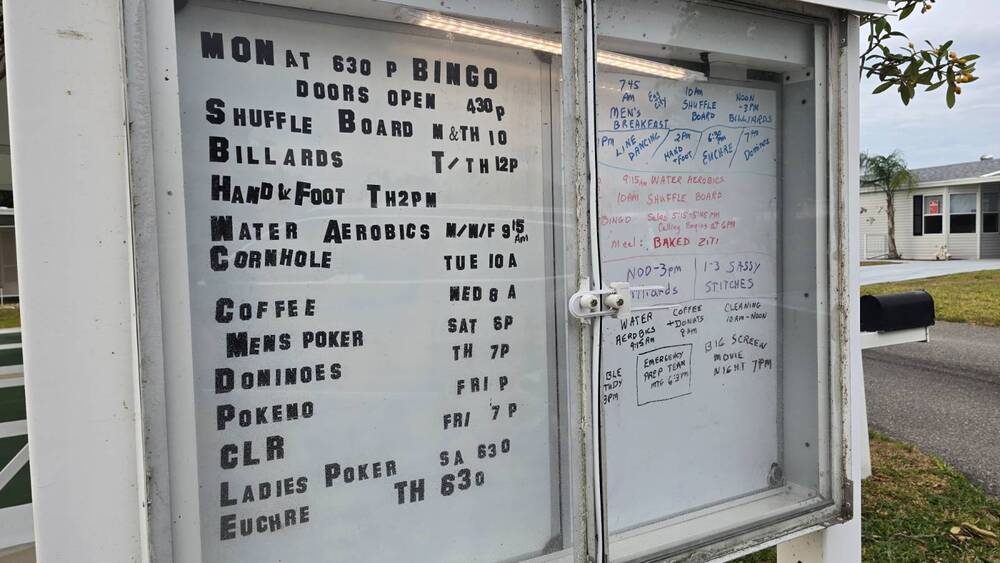 MON AT 630 P BINGO
DOORS OPEN 430P
SHUFFLE BOARD M & TH 10
BILLARDS T/TH 12P
HAND & FOOT TH2PM
WATER AEROBICS M/W/F 915 AM
CORNHOLE TUE 10 A
COFFEE WED 8 A
MENS POKER SAT 6P
DOMINOES TH 7P
POKENO FRI P
CLR FRI 7 P
LADIES POKER SA 630
EUCHRE TH 630
745 AM
MEN'S
BREAKFAST
10AM
SHUFFLE
BOARD
NOON
-3PM
BILLIARDS
PM LINE
DANCING
2PM
HAND
+FOOT
6:30 PM
EUCHRE
7PM
DOMINOE
9:15AM WATER AEROBICS
10AM SHUFFLE BOARD
BINGO Sales 5:15-5:45 PM
Calling Begins at 6PM
Meal: BAKED ZITI
NOO-3pm
lliards
1-3 SASSY
STITCHES
WATER
AEROBICS
9:15AM
COFFEE
+DONUTS
8AM
CLEANING
10AM-NOON
BLE
TUDY
3PM
EMERGENCY
PREP TEAM
MTG 6:3PM
BIG SCREEN
MOVIE
NIGHT 7PM